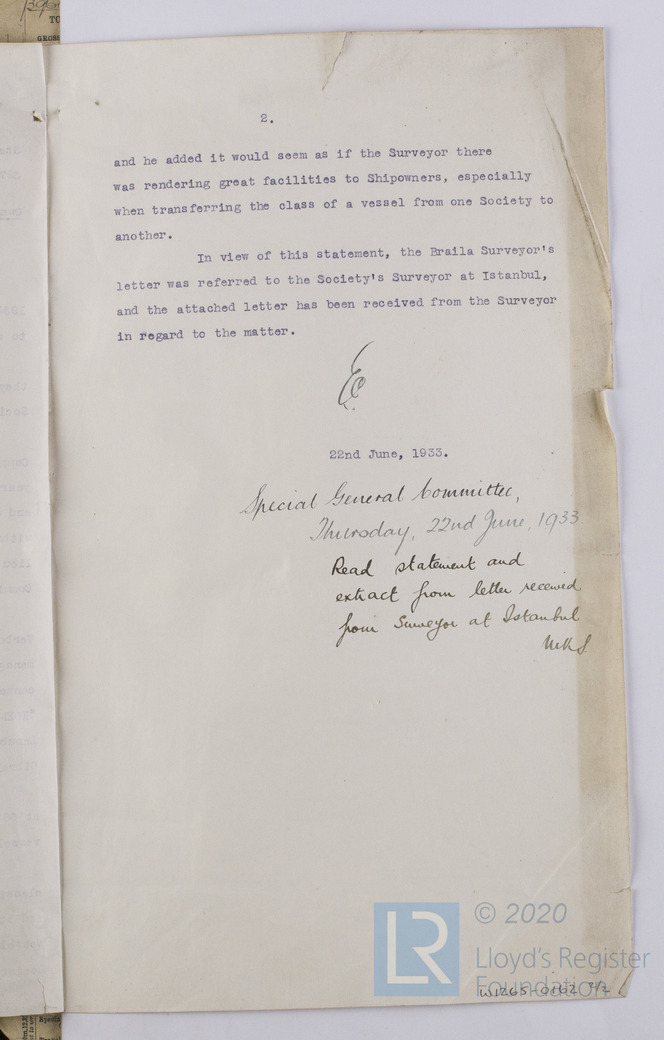 2.
and he added it would seem as if the Surveyor there
was rendering great facilities to Shipowners, especially
when transferring the class of a vessel from one Society to
another.
In view of this statement, the Braila Surveyor's
letter was referred to the Society's Surveyor at Istanbul,
and the attached letter has been received from the Surveyor
in regard to the matter.
22nd June, 1933.
Special General Committee,
Thursday, 22nd June, 1933
Read statement and
extract from letter received
from Surveyor at Istanbul
LR
© 2020
Lloyd's Register
Foundation
W1265-0162 2/2